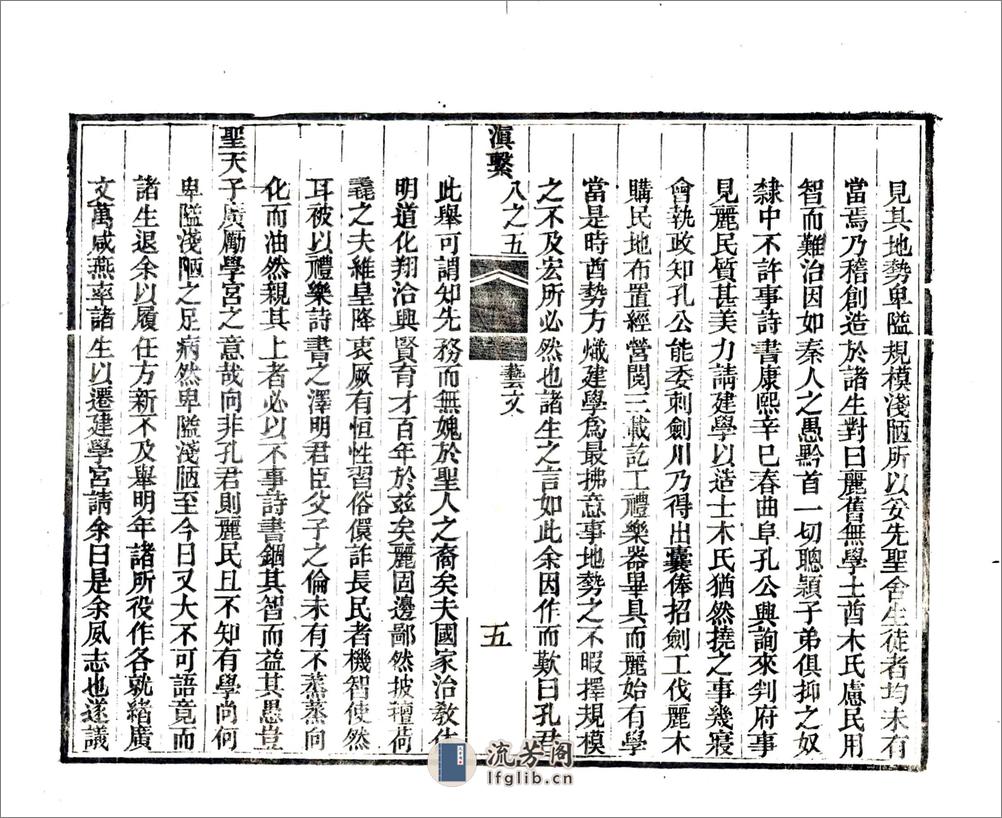 見其地勢卑隘規模淺陋所以妥先聖舍生徒者均未有
當焉乃稽創造於諸生對曰麗舊無學土酋木氏慮民用
智而難治因如秦人之愚黔首一切聰穎子弟俱抑之奴
隸中不許事詩書康熙辛巳春曲阜孔公興詢來判府事
見麗民質甚美力請建學以造士木氏猶然撓之事幾寢
會執政知孔公能委刺劍川乃得出囊俸招劍工伐麗木
購民地布置經營閱三載訖工禮樂器畢具而麗始有學
當是時酋勢方熾建學爲最拂意事地勢之不暇擇規模
之不及宏所必然也諸生之言如此余因作而歎曰孔君
滇繫 八之五 藝文 五
此舉可謂知先務而無媿於聖人之裔矣夫國家治教休
明道化翔洽興賢育才百年於玆矣麗固邊鄙然披氊荷
毳之夫維皇降衷厥有恒性習俗儇詐長民者機智使然
耳被以禮樂詩書之澤明君臣父子之倫未有不蒸蒸向
化而油然親其上者必以不事詩書錮其智而益其愚豈
聖天子廣勵學宮之意哉向非孔君則麗民且不知有學尚何
卑隘淺陋之足病然卑隘淺陋至今日又大不可語竟而
諸生退余以履任方新不及舉明年諸所役作各就緒廣
文萬咸燕率諸生以遷建學宮請余曰是余夙志也遂議
流芳閣
lfglib.cn